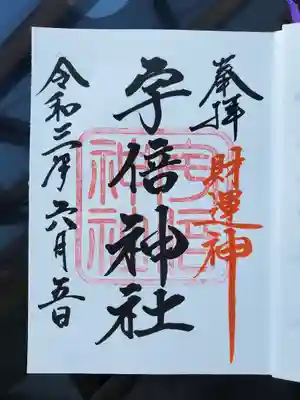 奉拝
財運神
宇倍神社
宇倍神社
令和三年六月五日